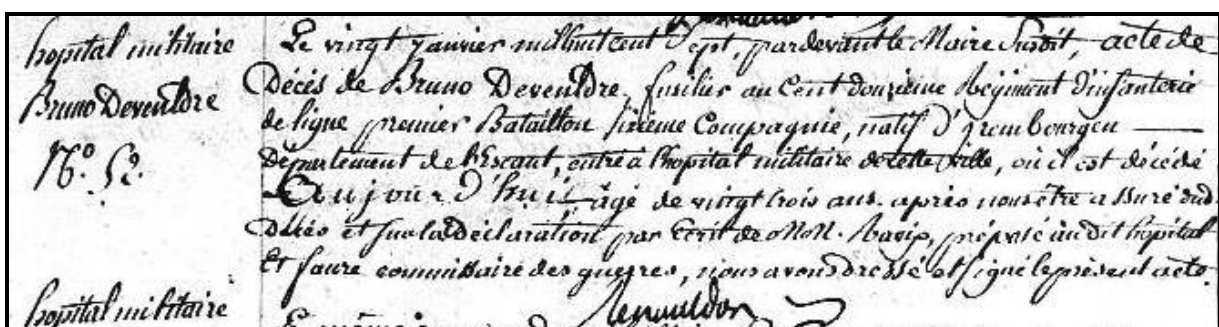 hopital militaire
Bruno Deveuldre
N.º 52.
Le vingt janvier mil huit cent Sept, pardevant le Maire Susdit, acte de
Décès de Bruno Deveuldre, fusilier au Cent douzième Régiment d'infanterie
de ligne premier Bataillon sixième Compagnie, natif d'grembourgen
département de l'Escaut, entré à l'hopital militaire de cette ville, où il est décédé
Aujourd'hui âgé de vingt trois ans. après nous être assuré dud.
Décès et sur la déclaration par Ecrit de MM. préposé au dit hopital
Et faure commissaire des guerres, nous avons dressé et signé le présent acte.
hopital militaire